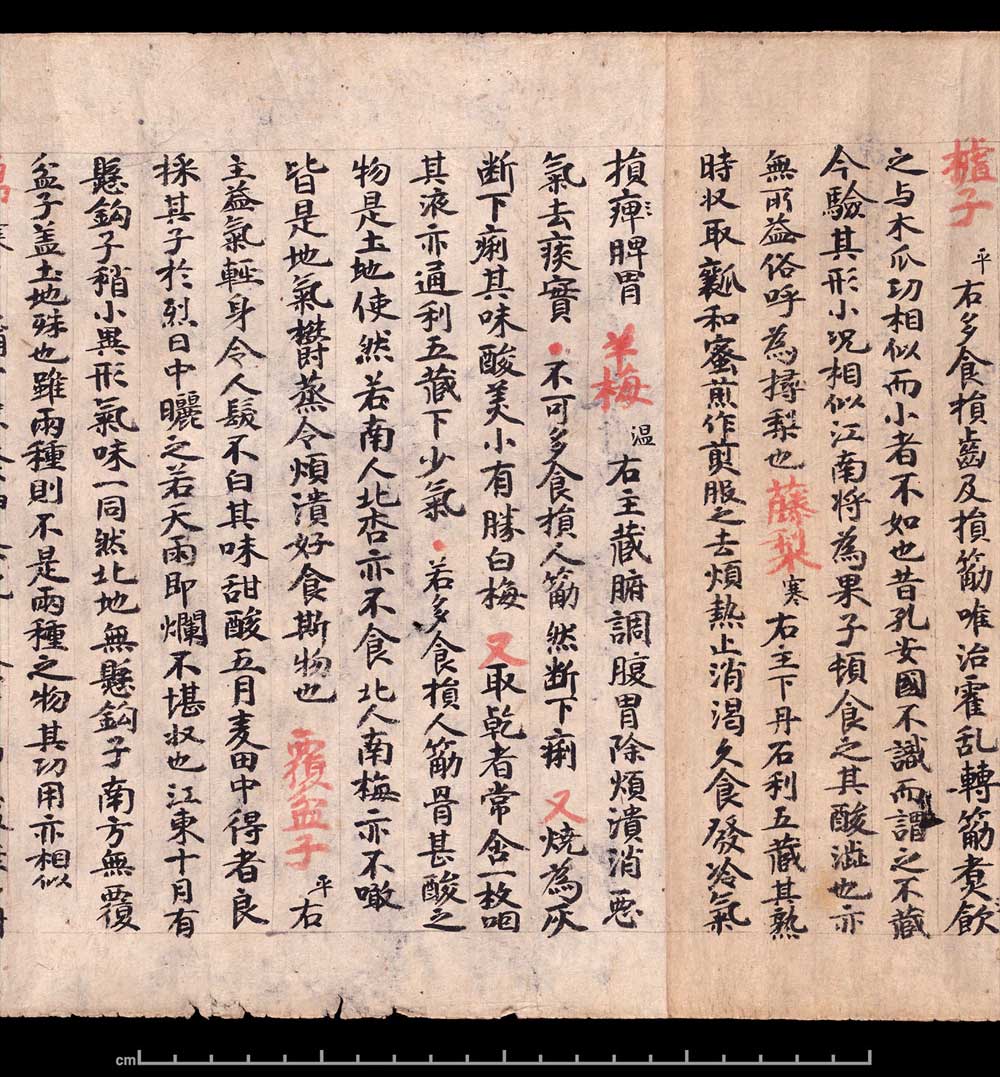 樝子 平 右多食損齒及損筋唯治霍乱轉筋煮飲
之与木瓜功相似而小者不如也昔孔安國不識而謂之不藏
今驗其形小況相似江南將為果子頓食之其酸澁也亦
無所益俗呼為㯉梨也 藤梨 寒 右主下丹石利五藏其熟
時収取瓤和蜜煎作煎服之去煩熱止消渴久食發冷氣
損痺〻脾胃 羊梅 温 右主藏腑調腹胃除煩潰消惡
氣去痰實 · 不可多食損人筋然断下痢 又 燒為灰
断下痢其味酸美小有勝白梅 又 取乾者常含一枚咽
其液亦通利五藏下少氣 · 若多食損人筋骨甚酸之
物是土地使然若南人北杏亦不食北人南梅亦不噉
皆是地氣欝蒸令煩潰好食斯物也 覆盆子 平 右
主益氣輕身令人髮不白其味甜酸五月麦田中得者良
採其子於烈日中曬之若天雨即爛不堪収也江東十月有
懸鈎子稍小異形氣味一同然北地無懸鈎子南方無覆
盆子盖土地殊也雖兩種則不是兩種之物其功用亦相似